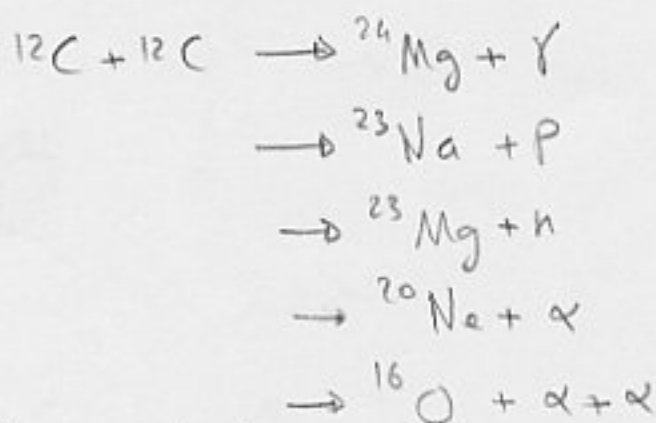 ¹²C + ¹²C → ²⁴Mg + γ
→ ²³Na + p
→ ²³Mg + n
→ ²⁰Ne + α
→ ¹⁶O + α + α